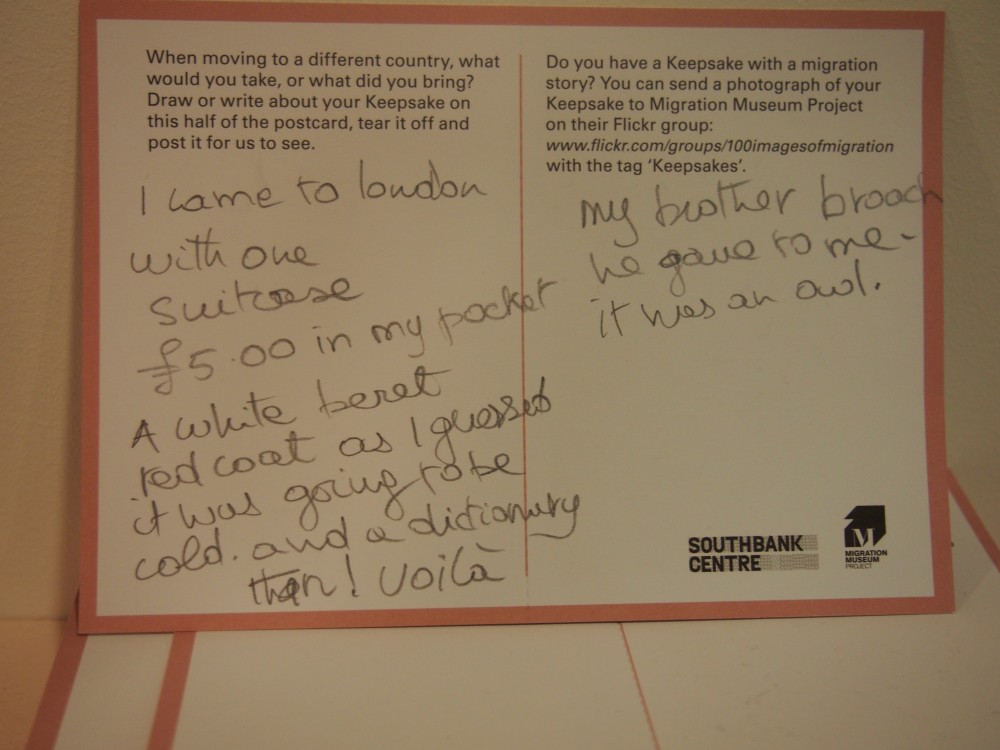 When moving to a different country, what
would you take, or what did you bring?
Draw or write about your Keepsake on
this half of the postcard, tear it off and
post it for us to see.
I came to london
with one
suitcase
£5.00 in my pocket
A white beret
red coat as I guessed
it was going to be
cold. and a dictionary
then! Voilà
Do you have a Keepsake with a migration
story? You can send a photograph of your
Keepsake to Migration Museum Project
on their Flickr group:
www.flickr.com/groups/100imagesofmigration
with the tag ‘Keepsakes’.
my brother broach
he gave to me-
it was an owl.
SOUTHBANK
CENTRE
M
MIGRATION
MUSEUM
PROJECT